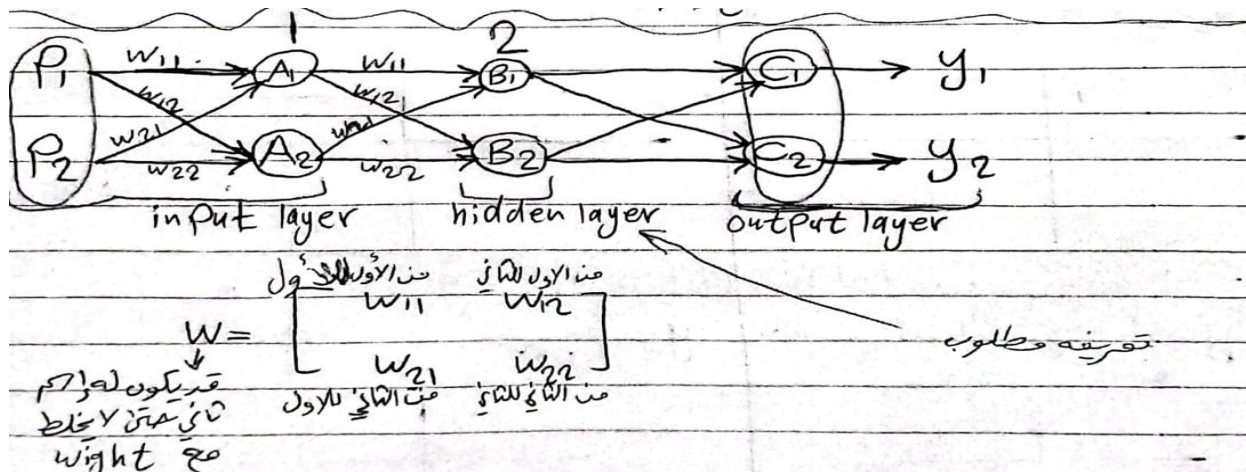 1 2
P1 w11 A1 w11 B1 C1 y1
w12 w12
w21
P2 w22 A2 w22 B2 C2 y2
input layer hidden layer output layer
من الأول للأول من الاول للثاني
W = w11 w12
w21 w22
من الثاني للاول من الثاني للثاني
تعريفه مطلوب
قد يكون له اسم
ثاني حتى لا يخلط
مع wight